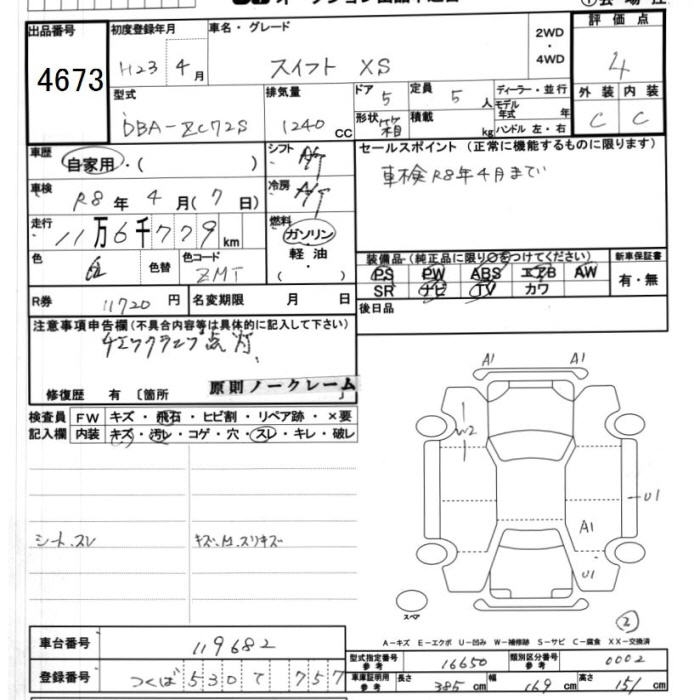 出品番号 4673
初度登録年月 H23年 4月
車名・グレード スイフト XS
2WD・4WD
評価点 4
外装 C 内装 C
型式 DBA-ZC72S
排気量 1240 CC
ドア 5 形状
定員 5人 積載 kg
ディーラー・並行
モデル年式 年
ハンドル 左・右
車歴 自家用・( )
シフト AT
セールスポイント (正常に機能するものに限ります)
車検R8年4月まで
車検 R8年 4月(7日)
冷房 A/
走行 11万6千779km
燃料 ガソリン・軽油・( )
色 色替 色コード ZMT
装備品(純正品に限り○をつけてください)
PS PW ABS エアB AW
SR ナビ TV カワ
新車保証書 有・無
R券 11720円 名変期限 月 日
後日品
注意事項申告欄(不具合内容等は具体的に記入して下さい)
チェックランプ点灯、
修復歴 有 〔箇所 〕
原則ノークレーム
検査員記入欄 FW キズ・飛石・ヒビ割・リペア跡・×要
内装 キズ・汚レ・コゲ・穴・スレ・キレ・破レ
A1 A1
W2
U1
A1
U1
シート、スレ
スペア
2
A-キズ E-エクボ U-凹み W-補修跡 S-サビ C-腐食 XX-交換済
車台番号 119682
型式指定番号 参考 16650 類別区分番号 参考 0002
登録番号 つくば 530 て 757
車庫証明用 参考 長さ 385cm 幅 169cm 高さ 151cm